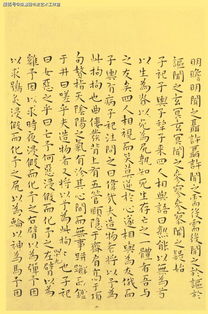 明瞻明聞之聶許聶許聞之需役需役聞之於謳於
謳聞之玄冥玄冥聞之參寥參寥聞之疑始
子祀子輿子犁子來四人相與語曰孰能以無為首
以生為脊以死為尻孰知死生存亡之一體者吾與
之友矣四人相視而笑莫逆於心遂相與為友俄而
子輿有病子祀往問之曰偉哉夫造物者將以予為
此拘拘也曲僂發背上有五管頤隱于齊肩高於頂
句贅指天陰陽之氣有沴其心閒而無事而鑑
于井曰嗟乎夫造物者又將以予為此拘拘也子祀
曰女惡之乎曰亡予何惡浸假而化予之左臂以為
雞予因以求時夜浸假而化予之右臂以為彈予因
以求鴞炙浸假而化予之尻以為輪以神為馬予因